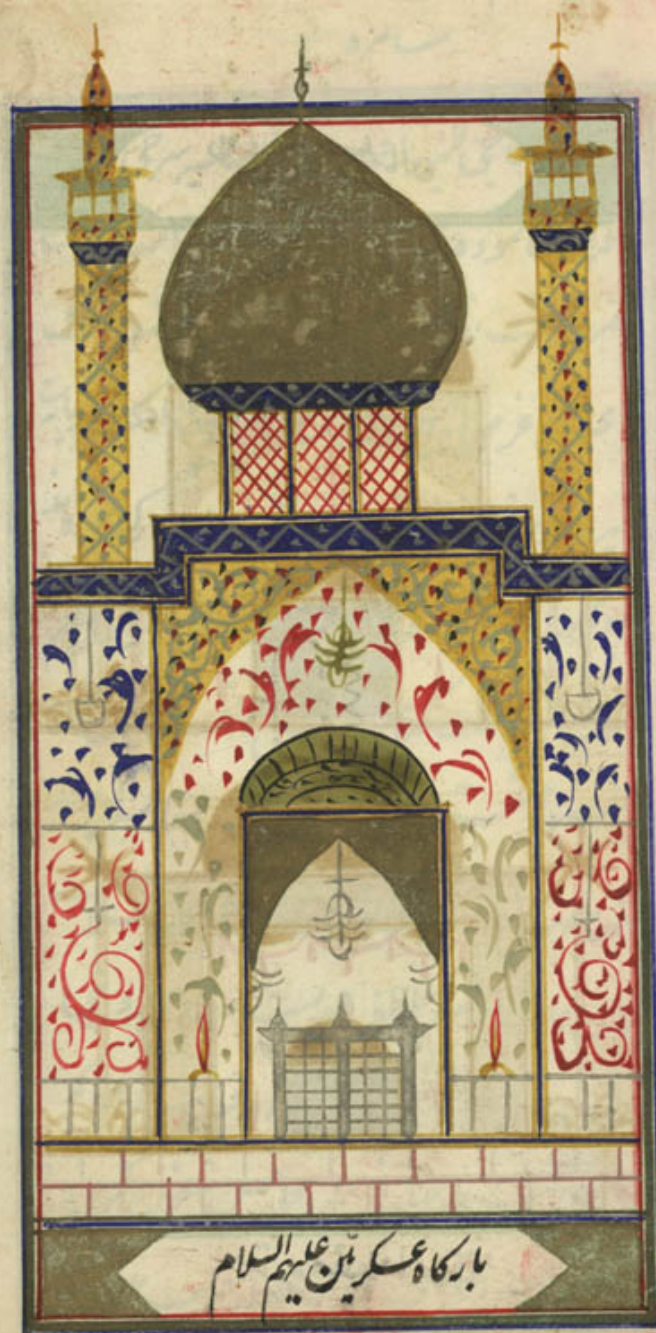 بارکاه عسکریّین علیهم السلام